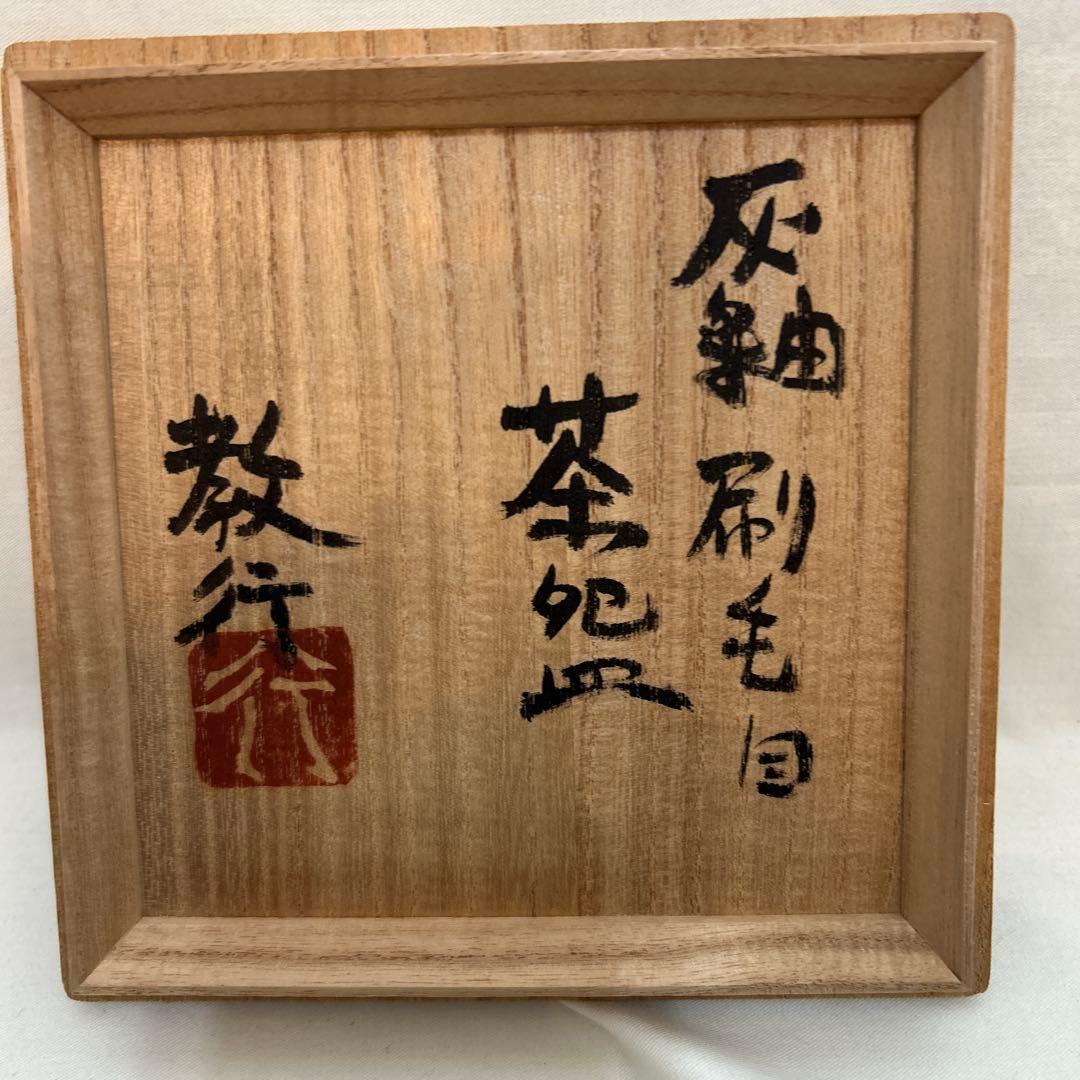 灰釉 刷毛目
茶盌
教行
行